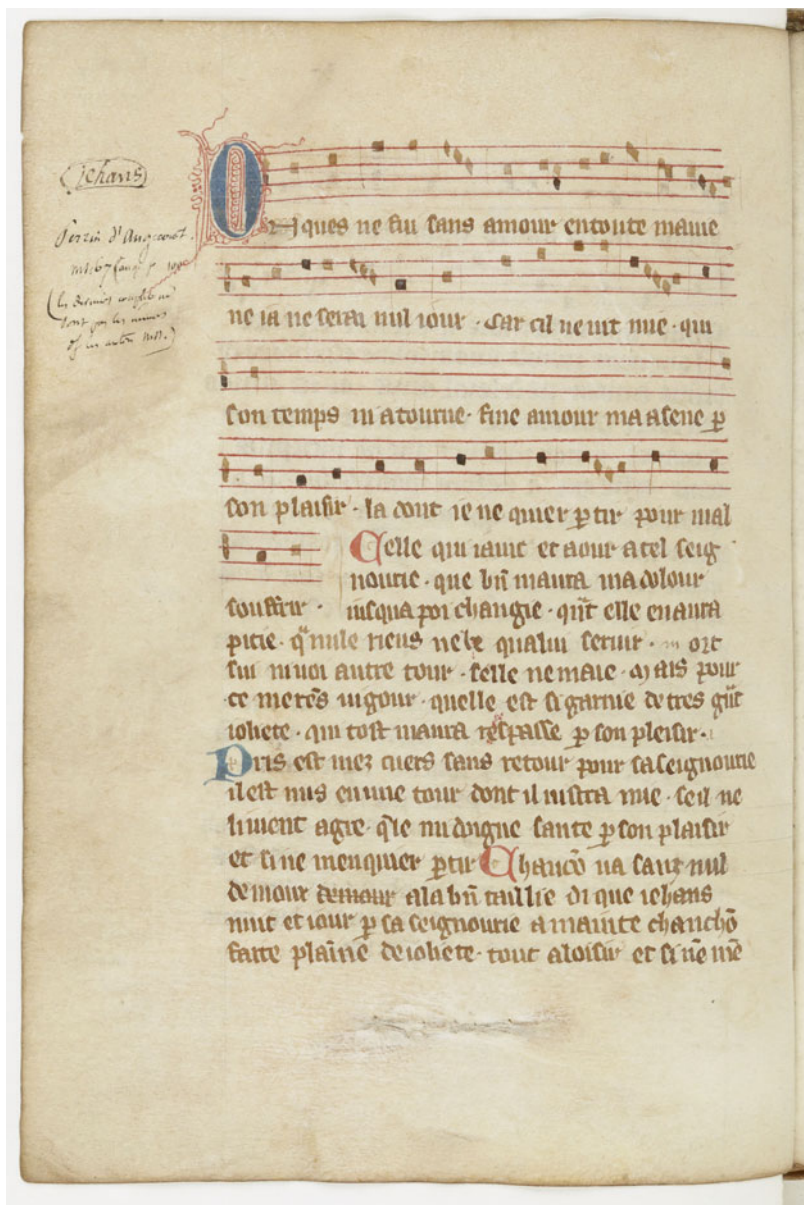 Jehans
Perrin d'Angecourt.
(les derniers couplets ne
sont pas les mêmes
cf les autres mss.)
Onques ne fui sans amour en toute ma vie
ne ia ne serai nul iour · Car cil ne uit mie · qui
son temps ni atourne · fine amour ma asene ꝑ
son plaisir · la dont ie ne quier ꝑtir pour mal
souffrir ·
Celle qui iaint et aour a tel seig
nourie · que bñ maura ma dolour
iusqua poi changie · qñt elle en aura
pitie · q̃ nule riens ne be qua lui seruir · ort
sui ni uoi autre tour · selle ne maie · Mais pour
ce me res uigour · quelle est si garnie de tres gñt
ioliete · qui tost maura respasse ꝑ son pleisir ·
Pris est mez cuers sans retour pour sa seignourie
il est mis en une tour dont il nistra mie · se il ne
li uient agre · q̃le mi doigne sante ꝑ son plaisir
et si ne men quier ꝑtir Chancõ ua sanz nul
demour demour a la bñ taillie di que iehans
nuit et iour ꝑ sa seignourie a mainte chanchõ
faite plainne de ioliete · tout a loisir et si nẽ mẽ